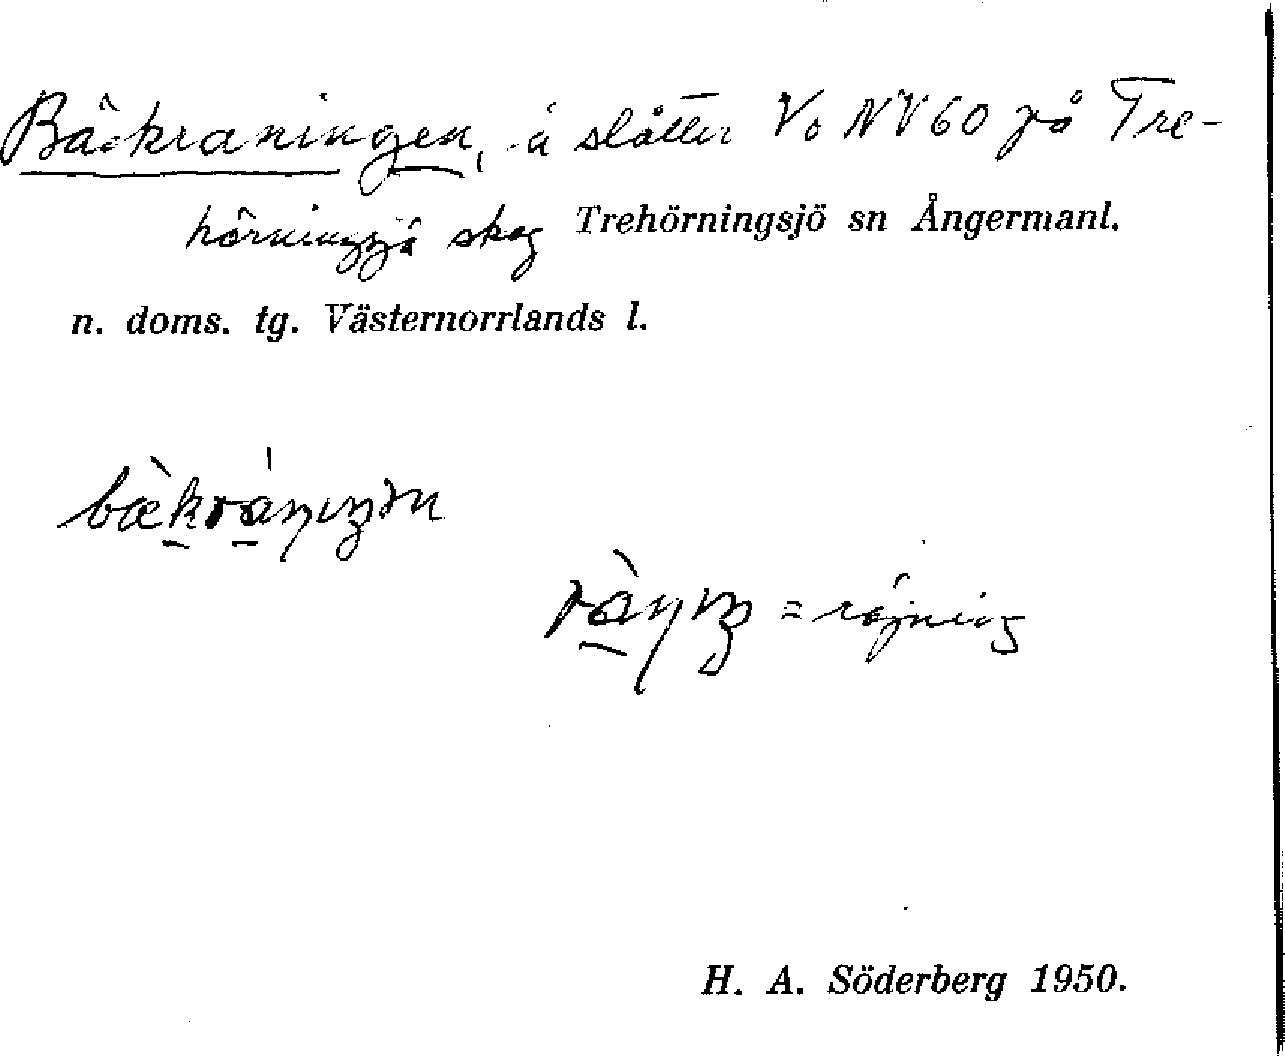 Bäckraningen, å slåtter V₀ NV60 på Tre-
hörningsjö skog Trehörningsjö sn Ångermanl.
n. doms. tg. Västernorrlands l.
= röjning
H. A. Söderberg 1950.